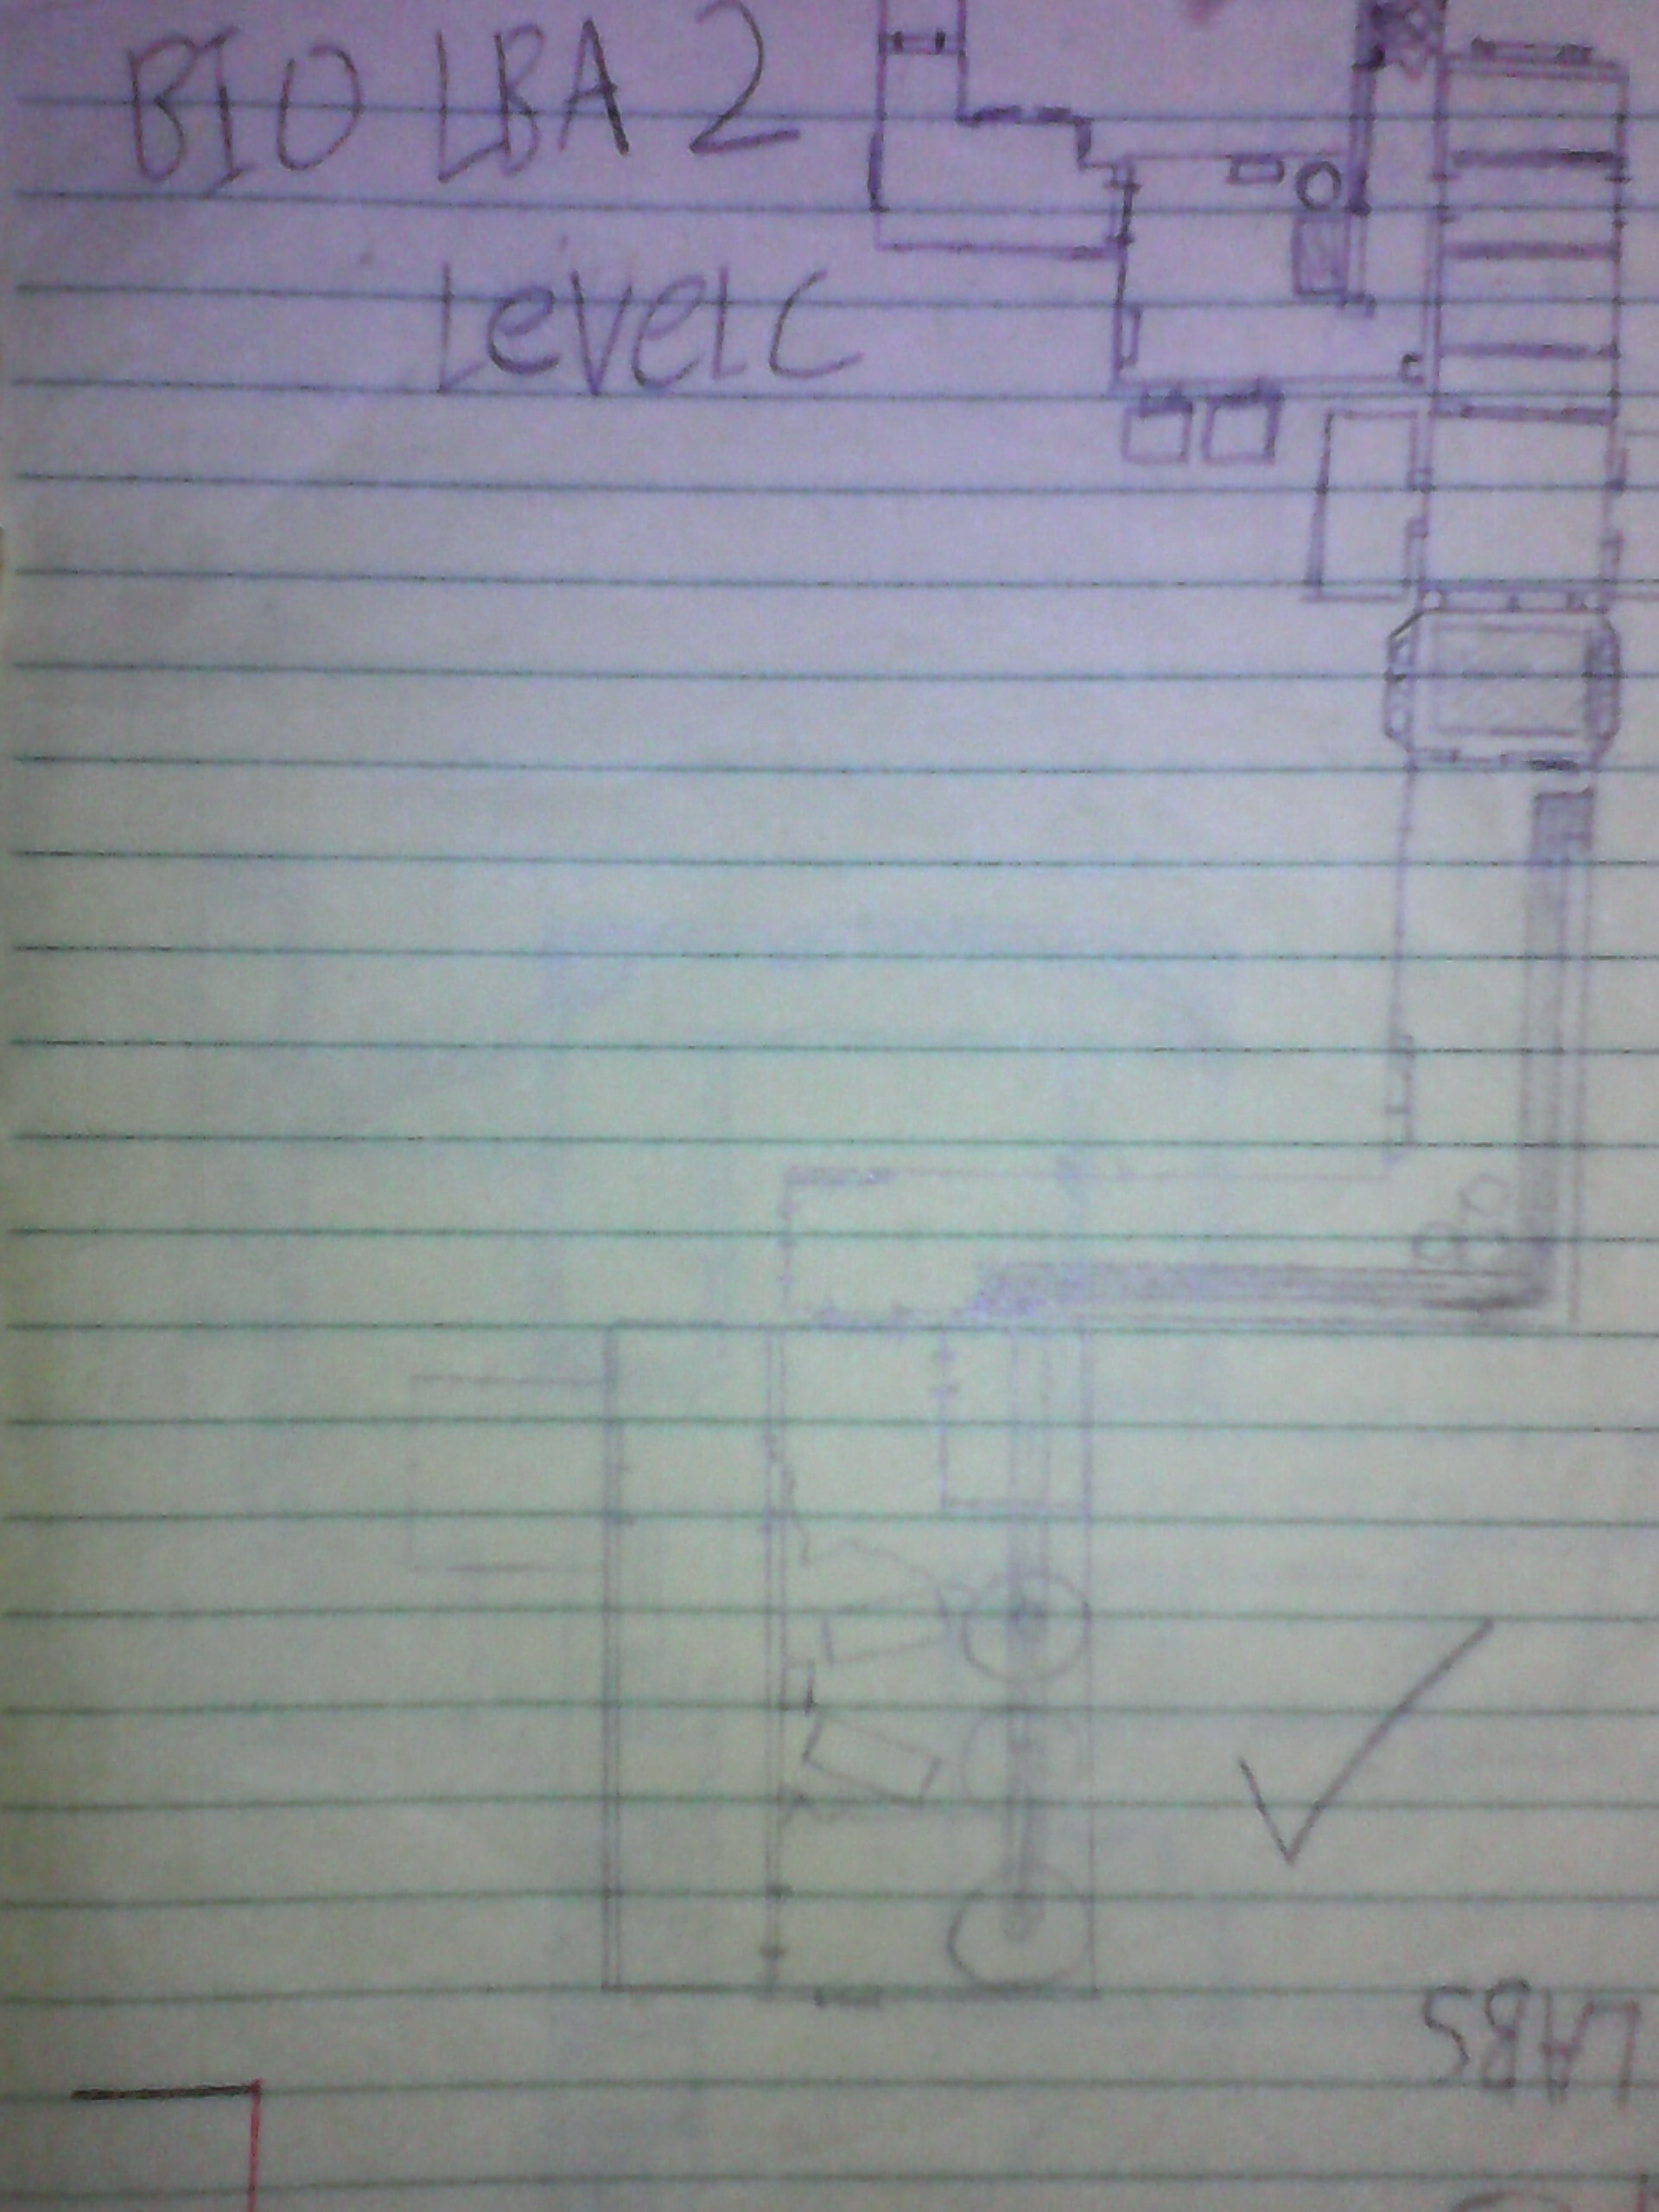 BIO LBA 2
LeVeLC
LABS